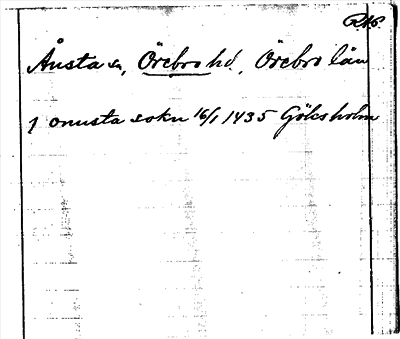 Ånsta sn, Örebro hd., Örebro län
j onusta sokn 16/1 1435 Göksholm